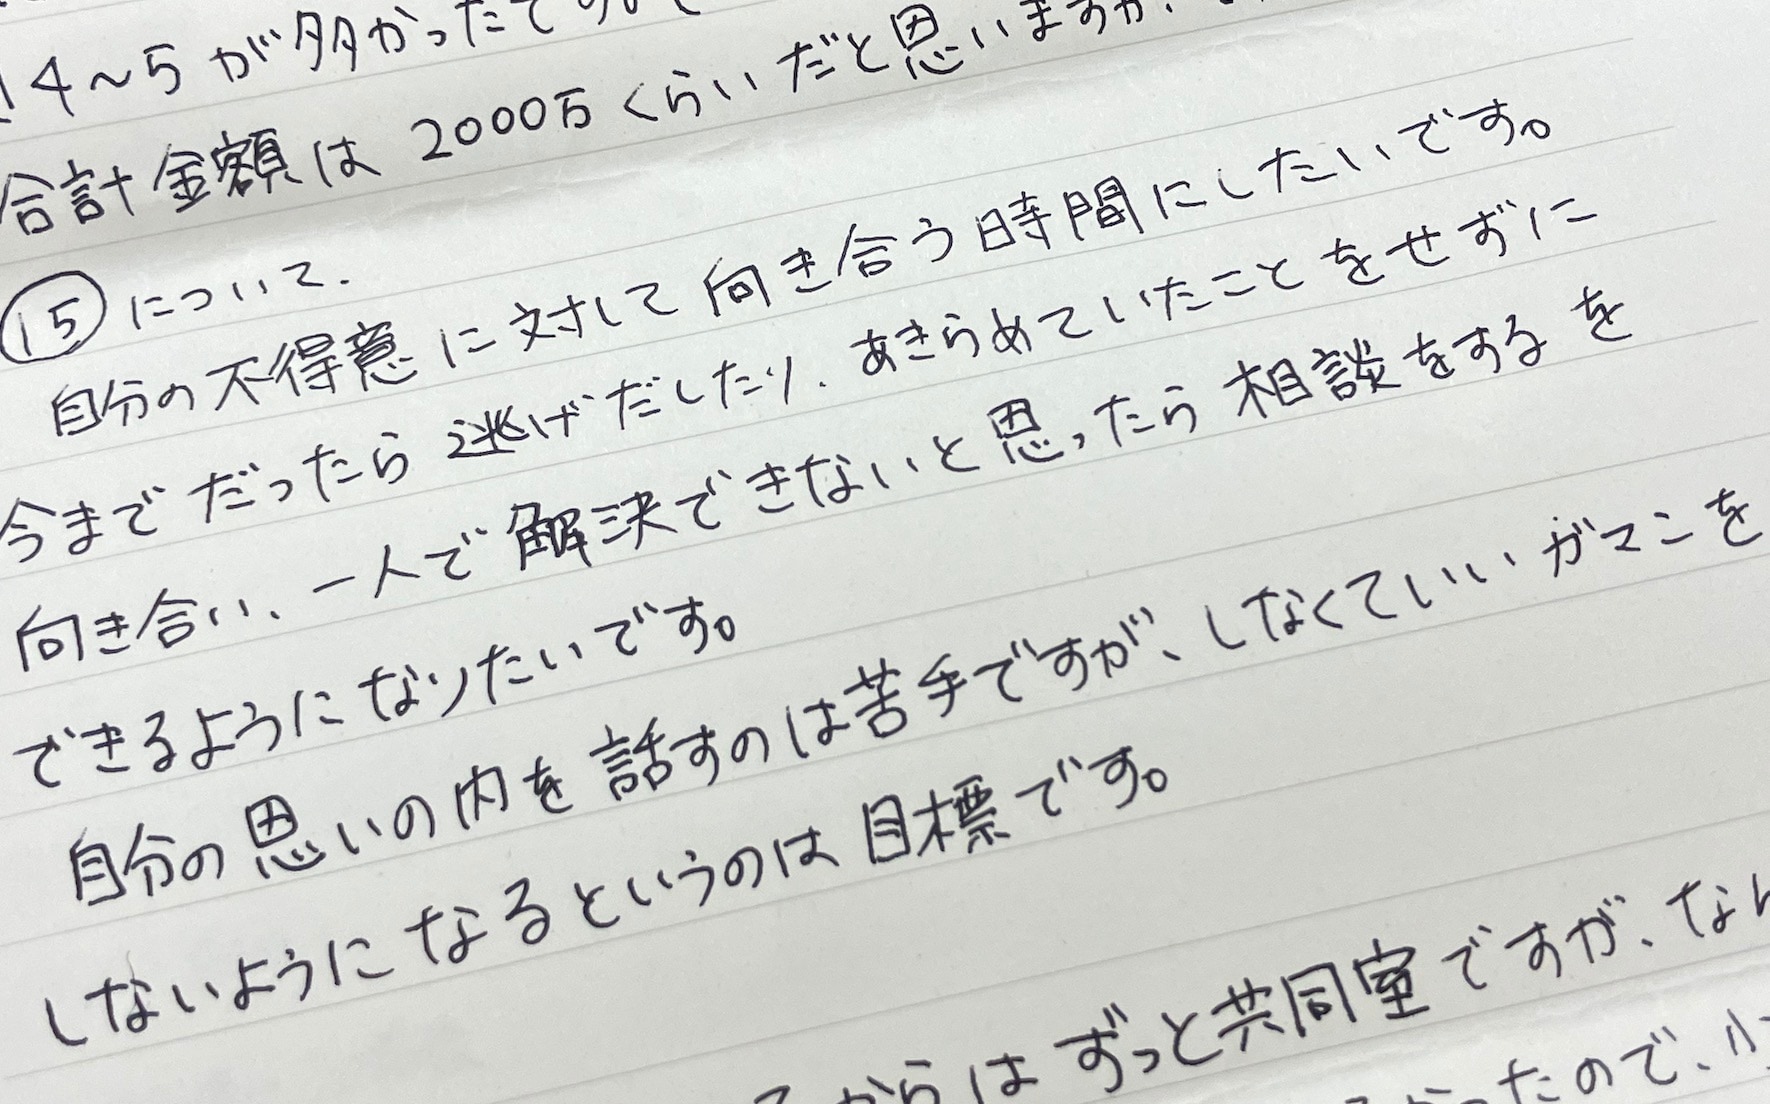 4～5が多かったです。
合計金額は2000万くらいだと思いますが、
⑮について.
自分の不得意に対して向き合う時間にしたいです。
今までだったら逃げだしたり、あきらめていたことをせずに
向き合い、一人で解決できないと思ったら相談をするを
できるようになりたいです。
自分の思いの内を話すのは苦手ですが、しなくていいガマンを
しないようになるというのは目標です。
からはずっと共同室ですが、なん
たので、